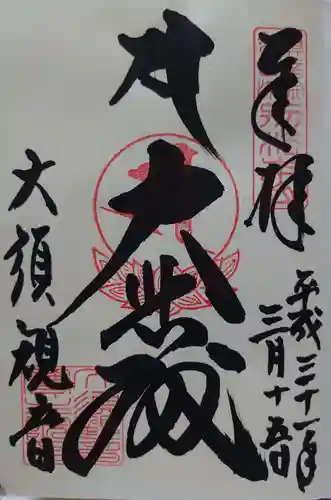 奉拝
平成三十一年
三月十五日
大悲殿
大須観音